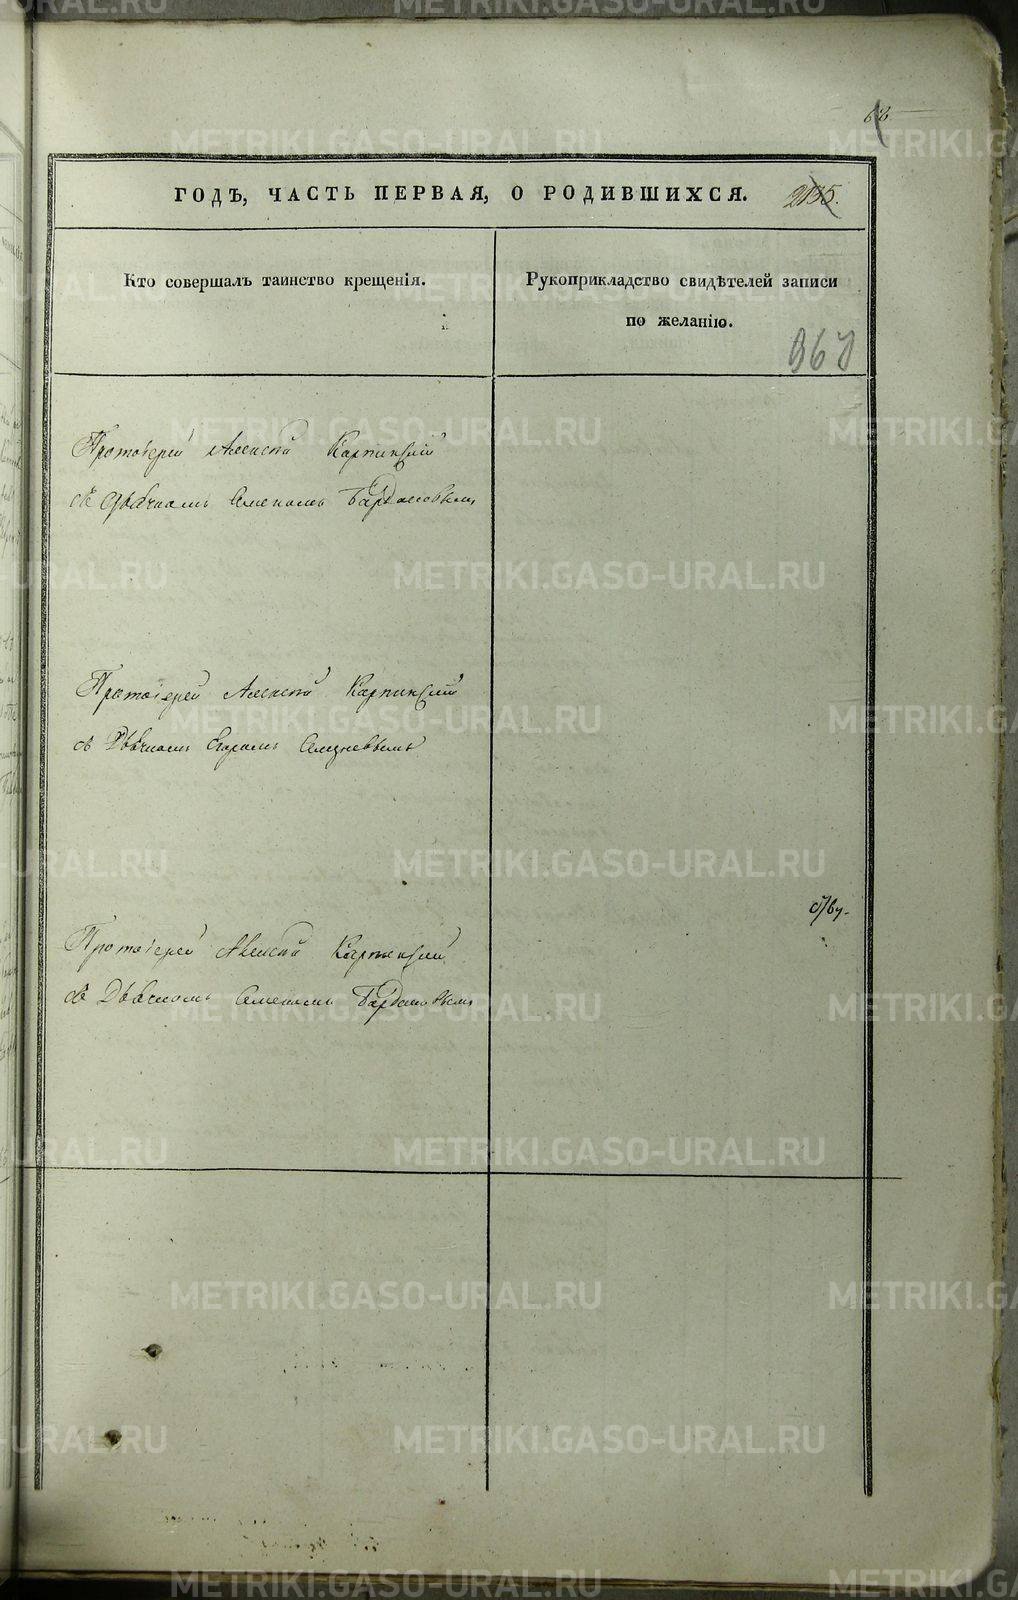 68
ГОДЪ, ЧАСТЬ ПЕРВАЯ, О РОДИВШИХСЯ. 2135.
Кто совершалъ таинство крещенія.
Рукоприкладство свидѣтелей записи
по желанію.
Протоіерей Алексѣй Карпинскій
съ Дьячкомъ Семеномъ
Протоіерей Алексѣй Карпинскій
съ Дьячкомъ Егоромъ
Протоіерей Алексѣй Карпинскій
съ Дьячкомъ Семеномъ
METRIKI.GASO-URAL.RU